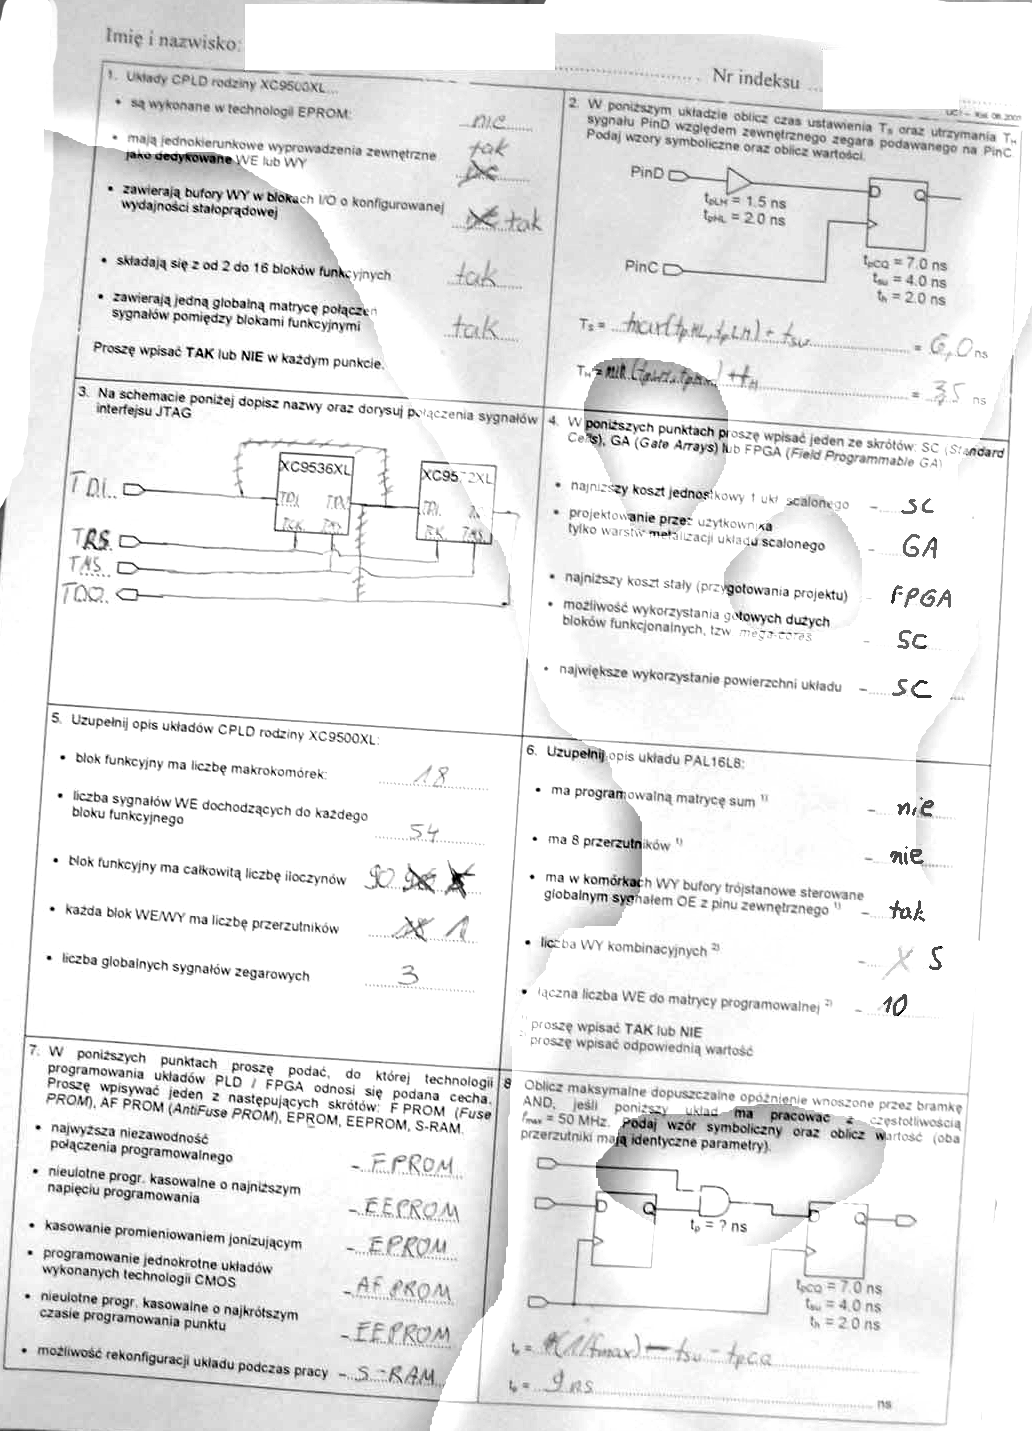 Imię i nazwisko:
Nr indeksu
1. Układy CPLD rodziny XC9500XL...
• są wykonane w technologii EPROM: nie
• mają jednokierunkowe wyprowadzenia zewnętrzne tak
jako dedykowane WE lub WY
• zawierają bufory WY w blokach I/O o konfigurowanej
wydajności stałoprądowej tak
• składają się z od 2 do 16 bloków funkcyjnych tak
• zawierają jedną globalną matrycę połączeń
sygnałów pomiędzy blokami funkcyjnymi tak
Proszę wpisać TAK lub NIE w każdym punkcie.
2. W poniższym układzie oblicz czas ustawienia Ts oraz utrzymania TH
sygnału PinD względem zewnętrznego zegara podawanego na PinC.
Podaj wzory symboliczne oraz oblicz wartości.
PinD
tpLH = 1.5 ns
tpHL = 2.0 ns
D Q
PinC
tpCQ = 7.0 ns
tsu = 4.0 ns
th = 2.0 ns
Ts = max(tpHL, tpLH) + tsu = 6,0 ns
TH = = 3,5 ns
3. Na schemacie poniżej dopisz nazwy oraz dorysuj połączenia sygnałów
interfejsu JTAG
XC9536XL
XC9572XL
TDI
TDI
TMS
TDO
4. W poniższych punktach proszę wpisać jeden ze skrótów: SC (Standard
Cells), GA (Gate Arrays) lub FPGA (Field Programmable GA)
• najniższy koszt jednostkowy 1 ukł. scalonego - SC
• projektowanie przez użytkownika
tylko warstw metalizacji układu scalonego - GA
• najniższy koszt stały (przygotowania projektu) - FPGA
• możliwość wykorzystania gotowych dużych
bloków funkcjonalnych, tzw. mega-cores - SC
• największe wykorzystanie powierzchni układu - SC
5. Uzupełnij opis układów CPLD rodziny XC9500XL:
• blok funkcyjny ma liczbę makrokomórek: 18
• liczba sygnałów WE dochodzących do każdego
bloku funkcyjnego 54
• blok funkcyjny ma całkowitą liczbę iloczynów 90
• każda blok WE/WY ma liczbę przerzutników 1
• liczba globalnych sygnałów zegarowych 3
6. Uzupełnij opis układu PAL16L8:
• ma programowalną matrycę sum 1) - nie
• ma 8 przerzutników 1) - nie
• ma w komórkach WY bufory trójstanowe sterowane
globalnym sygnałem OE z pinu zewnętrznego 1) - tak
• liczba WY kombinacyjnych 2) - S
• łączna liczba WE do matrycy programowalnej 2) - 10
1) proszę wpisać TAK lub NIE
2) proszę wpisać odpowiednią wartość
7. W poniższych punktach proszę podać, do której technologii
programowania układów PLD / FPGA odnosi się podana cecha.
Proszę wpisywać jeden z następujących skrótów: F PROM (Fuse
PROM), AF PROM (AntiFuse PROM), EPROM, EEPROM, S-RAM.
• najwyższa niezawodność
połączenia programowalnego - FPROM
• nieulotne progr. kasowalne o najniższym
napięciu programowania - EEPROM
• kasowanie promieniowaniem jonizującym - EPROM
• programowanie jednokrotne układów
wykonanych technologii CMOS - AF PROM
• nieulotne progr. kasowalne o najkrótszym
czasie programowania punktu - EEPROM
• możliwość rekonfiguracji układu podczas pracy - S-RAM
8 Oblicz maksymalne dopuszczalne opóźnienie wnoszone przez bramkę
AND, jeśli poniższy układ ma pracować z częstotliwością
fmax = 50 MHz. Podaj wzór symboliczny oraz oblicz wartość (oba
przerzutniki mają identyczne parametry).
D Q
tp = ? ns
D Q
tpCQ = 7.0 ns
tsu = 4.0 ns
th = 2.0 ns
tp = (1/fmax) - tsu - tpCQ
tp = 9 ns ns